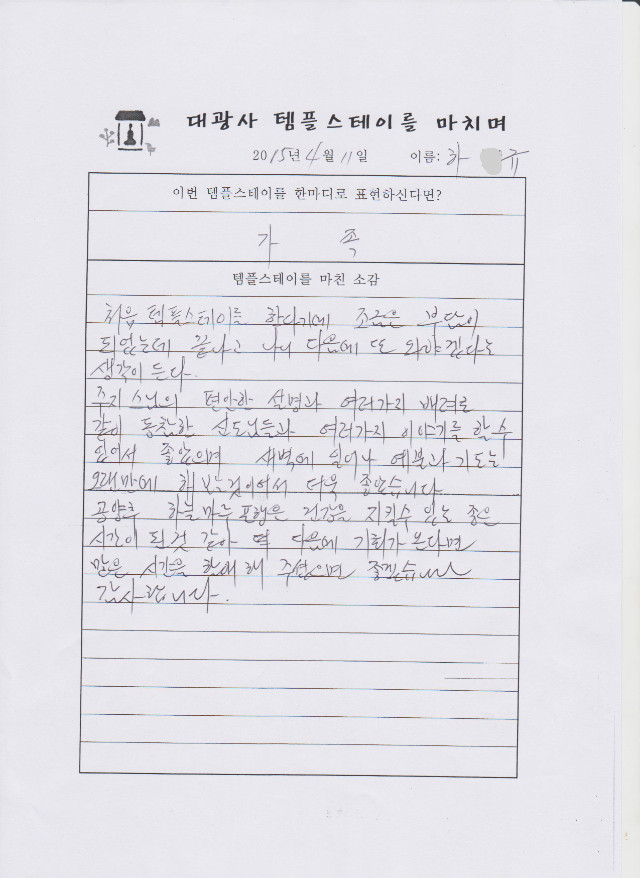 대광사 템플스테이를 마치며
2015년 4월 11일 이름: 하 규
이번 템플스테이를 한마디로 표현하신다면?
가 족
템플스테이를 마친 소감
처음 템플스테이를 한다기에 조금은 부담이
되었는데 끝나고 나니 다음에 또 와야 겠다는
생각이 든다.
주지스님의 편안한 설명과 여러가지 배려로
같이 동참한 신도님들과 여러가지 이야기를 할수
있어서 좋았으며 새벽에 일어나 예불과 기도는
오랜만에 해 보는것이어서 더욱 좋았습니다
공양후 하늘마루 포행은 건강을 지킬수 있는 좋은
시간이 된것 같아 다음에 기회가 온다면
많은 시간을 함께 해 주셨으면 좋겠습니다
감사합니다.